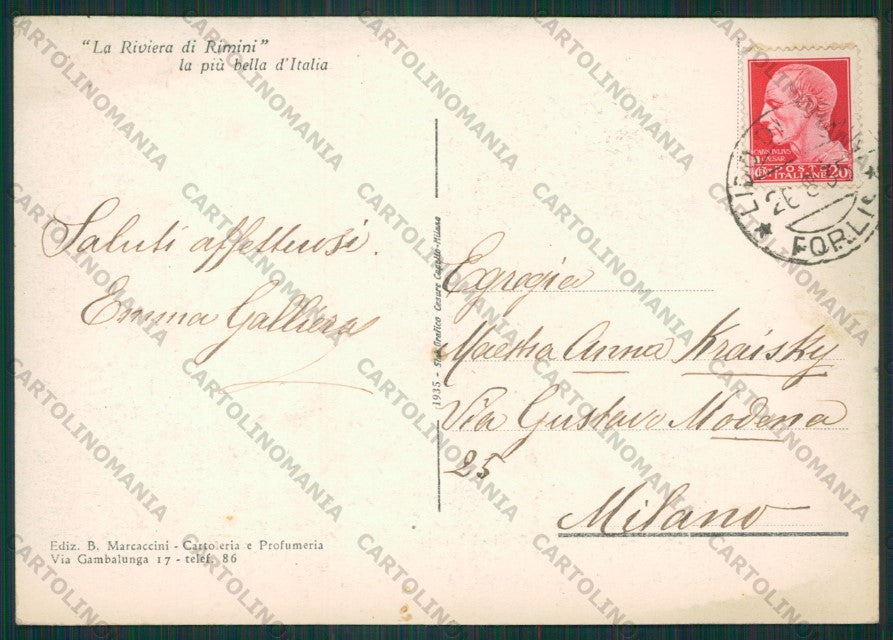 "La Riviera di Rimini"
la più bella d'Italia
Saluti affettuosi.
Emma Galliera
Ediz. B. Marcaccini - Cartoleria e Profumeria
Via Gambalunga 17 - telef. 86
1935 - Stab. Grafico Cesare Milano
CAIVS IVLIVS
CAESAR
POSTE
ITALIANE
20
LIDO DI
26 8 35
FORLI
Egregia
Maestra Anna Kraisky
Via Gustavo Modena
25
Milano
CARTOLINOMANIA